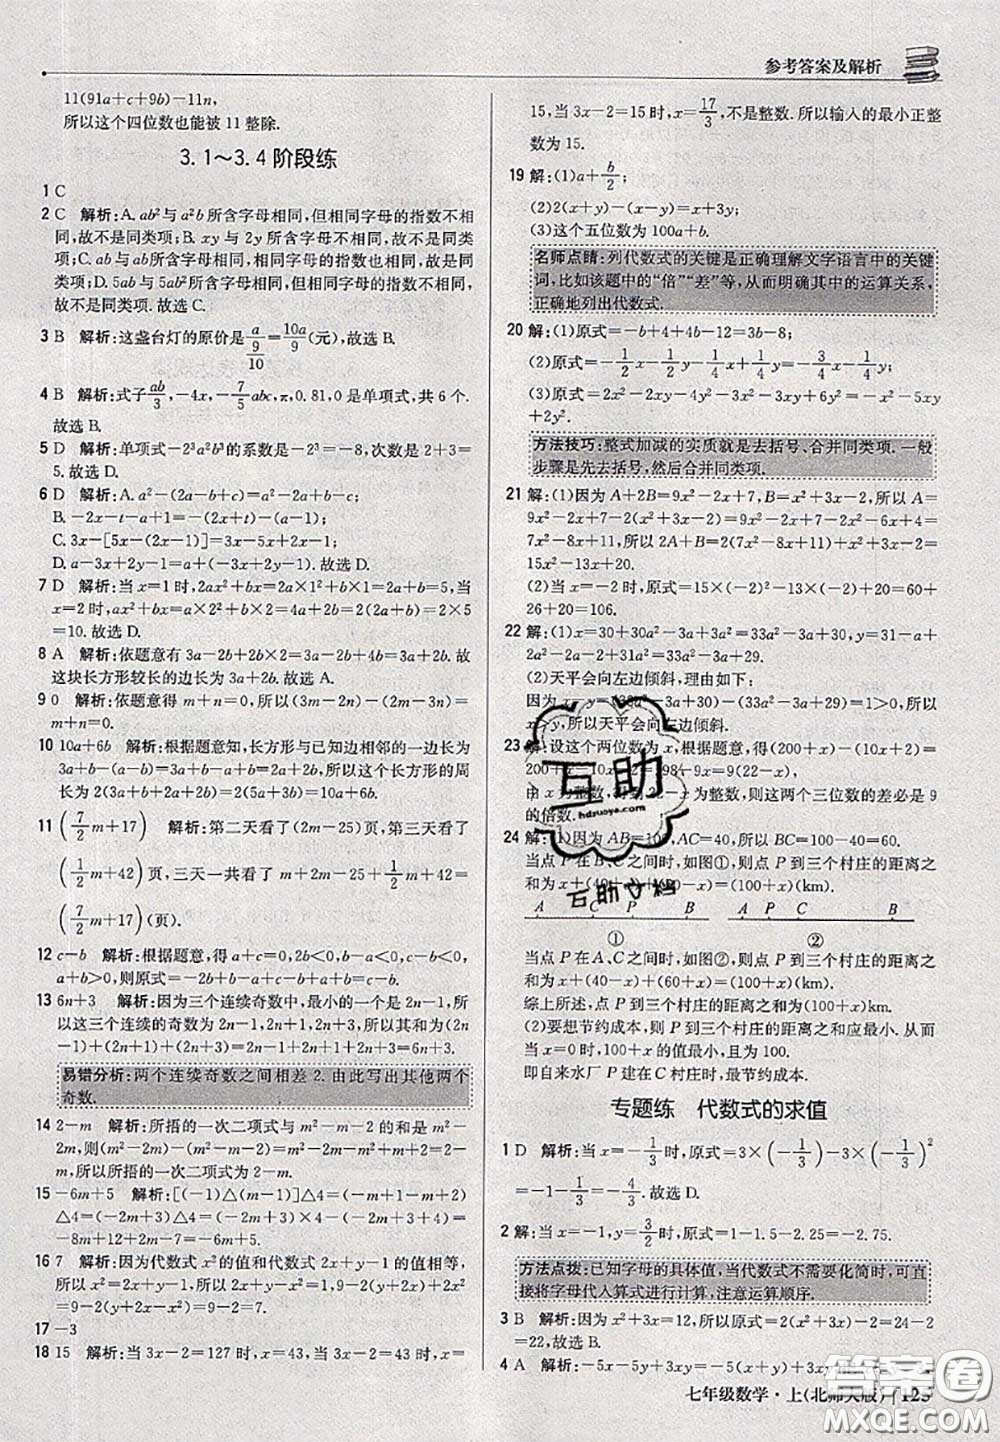 参考答案及解析
11(91a+c+9b)-11n,
所以这个四位数也能被 11 整除.
3.1～3.4 阶段练
1 C
2 C 解析:A. ab²与 a²b 所含字母相同,但相同字母的指数不相
同,故不是同类项;B. xy 与 2y 所含字母不相同,故不是同类
项;C. 5ab²与 ab²所含字母相同,相同字母的指数相同,故是同
类项;D. 5ab 与 5ab²所含字母相同,但相同字母的指数不相
同,故不是同类项. 故选 C.
3 B 解析:这盏台灯的原价是 a/(9/10)=10a/9(元),故选 B.
4 B 解析:式子 ab/3,-4x,-7/5abc,π,0.81,0 是单项式,共 6 个.
故选 B.
5 D 解析:单项式-2³a²b³的系数是-2³=-8,次数是 2+3=
5.故选 D.
6 D 解析:A. a²-(2a-b+c)=a²-2a+b-c;
B. -2x-t-a+1=-(2x+t)-(a-1);
C. 3x-[5x-(2x-1)]=3x-5x+2x-1;
D. a-3x+2y-1=a+(-3x+2y-1).故选 D.
7 D 解析:当 x=1 时,2ax²+bx=2a×1²+b×1=2a+b=5,当
x=2 时,ax²+bx=a×2²+b×2=4a+2b=2(2a+b)=2×5
=10.故选 D.
8 A 解析:依题意有 3a-2b+2b×2=3a-2b+4b=3a+2b.故
这块长方形较长的边长为 3a+2b.故选 A.
9 0 解析:依题意得 m+n=0,所以(3m-2n)-(2m-3n)=
m+n=0.
10 10a+6b 解析:根据题意知,长方形与已知边相邻的一边长为
3a+b-(a-b)=3a+b-a+b=2a+2b,所以这个长方形的周
长为 2(3a+b+2a+2b)=2(5a+3b)=10a+6b.
11 (7/2m+17) 解析:第二天看了(2m-25)页,第三天看了
(1/2m+42)页,三天一共看了 m+2m-25+1/2m+42=
(7/2m+17)(页).
12 c-b 解析:根据题意,得 a+c=0,2b<0,b-a<0,c-b>0,
a-b>0,则原式=-2b+b-a+c-b+a+b=c-b.
13 6n+3 解析:因为三个连续奇数中,最小的一个是 2n-1,所
以这三个连续的奇数为 2n-1,2n+1,2n+3.故它们的和为(2n
-1)+(2n+1)+(2n+3)=2n-1+2n+1+2n+3=6n+3.
易错分析:两个连续奇数之间相差 2. 由此写出其他两个
奇数.
14 2-m 解析:所捂的一次二项式与 m²-m-2 的和是 m²-
2m,则(m²-2m)-(m²-m-2)=m²-2m-m²+m+2=
-m+2=2-m.所以所捂的一次二项式为 2-m.
15 -6m+5 解析:[(-1)△4(m-1)]△4=(-2-4m+4+1)
△4=(-2m+3)△4=4(-2m+3)-3×4+5=
-8m+12+2m-12+5=-6m+5.
16 7 解析:因为代数式 x²的值和代数式 2x+y-1 的值相等,
所以 x²=2x+y-1,所以 x²-2x-y=-1,9-2(2x+y)+2x²
=9+2(x²-2x-y)=9-2=7.
17 -3
18 15 解析:当 3x-2=127 时,x=43,当 3x-2=43 时,x=
15,当 3x-2=15 时,x=17/3,不是整数. 所以输入的最小正整
数为 15.
19 解:(1)a+b/2;
(2)2(x+y)-(x-y);
(3)这个五位数为 100a+b.
名师点睛:列代数式的关键是正确理解文字语言中的关键
词,比如该题中的“倍”“差”等,从而明确其中的运算关系,
正确地列出代数式.
20 解:(1)原式=-b+4+4b-12=3b-8;
(2)原式=-1/2x-1/2y-1/4x+1/4y=-3/4x-1/4y;
(3)原式=2x²-2x-4y²-3x²+xy+6y²=-x²-2x+xy
+2y².
方法技巧:整式加减的实质就是去括号、合并同类项.一般
步骤是先去括号,然后合并同类项.
21 解:(1)因为 A+2B=9x²-2x+7,B=x²+3x-2,所以 A=
9x²-2x+7-2(x²+3x-2)=9x²-2x+7-2x²-6x+4=
7x²-8x+11,所以 2A+B=2(7x²-8x+11)+x²+3x-2=
15x²-13x+20.
(2)当 x=-2 时,原式=15×(-2)²-13×(-2)+20=60+
26+20=106.
22 解:(1)x=30+30a²-3a+3a²=33a²-3a+30,y=
31+2a²-3a+
(2)天平会向左边倾斜,理由如下:
因为
x>y,所以天平会向左边倾斜.
23 解:设这个两位数为 x,根据题意,得(200+x)-(10x+2)=
200+x-10x-2=198-9x=9(22-x).
由 x 为整数,得到 22-x 为整数,则这两个三位数的差必是 9
的倍数.
24 解:(1)因为 AB=100,AC=40,所以 BC=100-40=60.
当点 P 在 B、C 之间时,如图①,则点 P 到三个村庄的距离之
和为 x+(40+x)+(60-x)=(100+x)(km).
A C P B
①
A P C B
②
当点 P 在 A、C 之间时,如图②,则点 P 到三个村庄的距离之
和为 x+(40-x)+(60+x)=(100+x)(km).
综上所述,点 P 到三个村庄的距离之和为(100+x)km.
(2)要想节约成本,则点 P 到三个村庄的距离之和应最小. 从而
当 x=0 时,100+x 的值最小,且最小值为 100.
即自来水厂 P 建在 C 村庄时,最节约成本.
专题练 代数式的求值
1 D 解析:当 x=-1/3时,原式=3×(-1/3)-3×(-1/3)²
=-1-1/3=-4/3.故选 D.
2 解:当 x=-1,y=3/2时,原式=1-1.5-2.25=-2.75.
方法点拨:已知字母的具体值,当代数式不需要化简时,可直
接将字母代入算式进行计算,注意运算顺序.
3 B 解析:因为 x²+3x=12,所以原式=2(x²+3x)-2=24-2
=22,故选 B.
4 A 解析:-5x-5y+3+7xy=-5(x+y)+7xy+3,因为 x+y
七年级数学·上(北师大版) 125
互助
hdzuoye.com
互助文档
答案圈
MXQE.COM